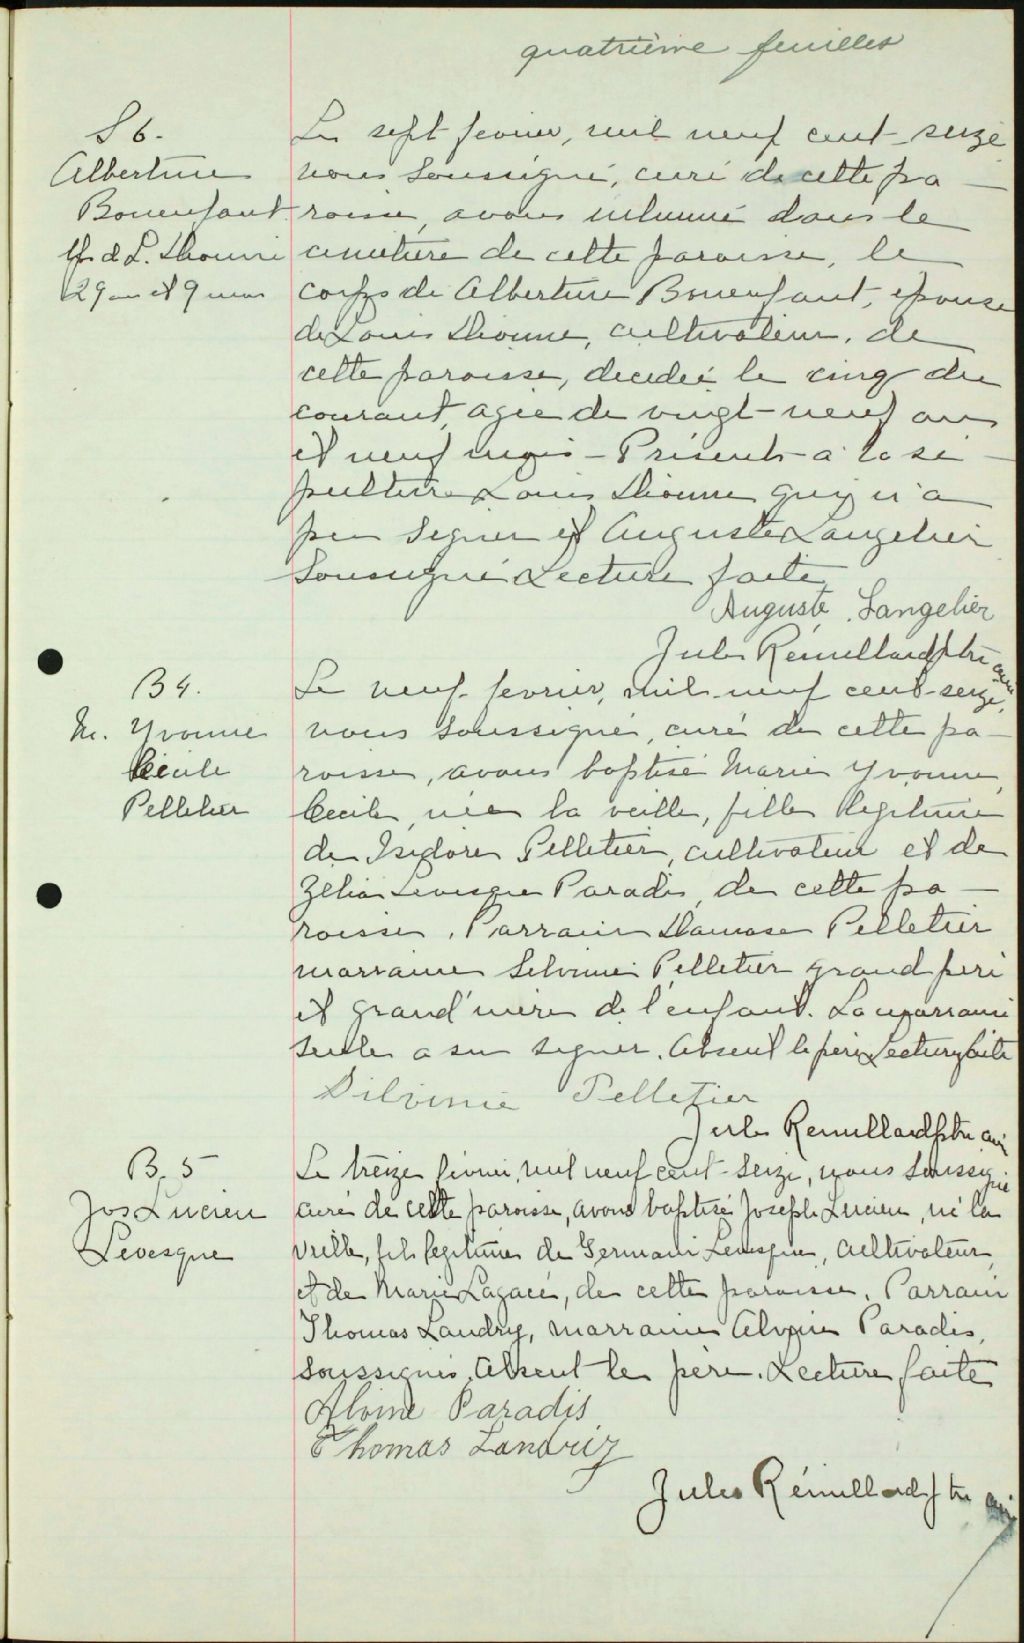 quatrième feuillet
S 6.
Albertine
Bonenfant
Ep. d L. Dionne
29 ans et 9 mois
Le sept fevrier, mil neuf cent-seize
nous soussigné, curé de cette pa-
roisse, avons inhumé dans le
cimetière de cette paroisse, le
corps de Albertine Bonenfant, epouse
de Louis Dionne, cultivateur, de
cette paroisse, décédée le cinq du
courant, agée de vingt-neuf ans
et neuf mois - Présents à la sé-
pulture Louis Dionne qui n'a
pu signer et Auguste Langelier
Soussigné Lecture faite
Auguste Langelier
Jules Rémillard ptre curé
B 4.
M. Yvonne
Cécile
Pelletier
Le neuf fevrier, mil-neuf cent-seize,
nous soussigné, curé de cette pa-
roisse, avons baptisé Marie Yvonne,
Cecile, née la veille, fille légitime
de Isidore Pelletier, cultivateur et de
Zélia Levesque Paradis, de cette pa-
roisse. Parrain Damase Pelletier
marraine Silvinie Pelletier grand père
et grand'mère de l'enfant. La marraine
seule a su signer. Absent le père Lecture faite
Silvinie Pelletier
Jules Remillard ptre curé
B. 5
Jos Lucien
Levesque
Le treize février, mil neuf cent-seize, nous soussigné
curé de cette paroisse, avons baptisé Joseph Lucien, né la
veille, fils légitime de Germain Levesque, cultivateur,
et de Marie Lagacé, de cette paroisse. Parrain
Thomas Landry, marraine Alvine Paradis,
soussignés. Absent le père. Lecture faite
Alvine Paradis
Thomas Landriz
Jules Rémillard ptre curé